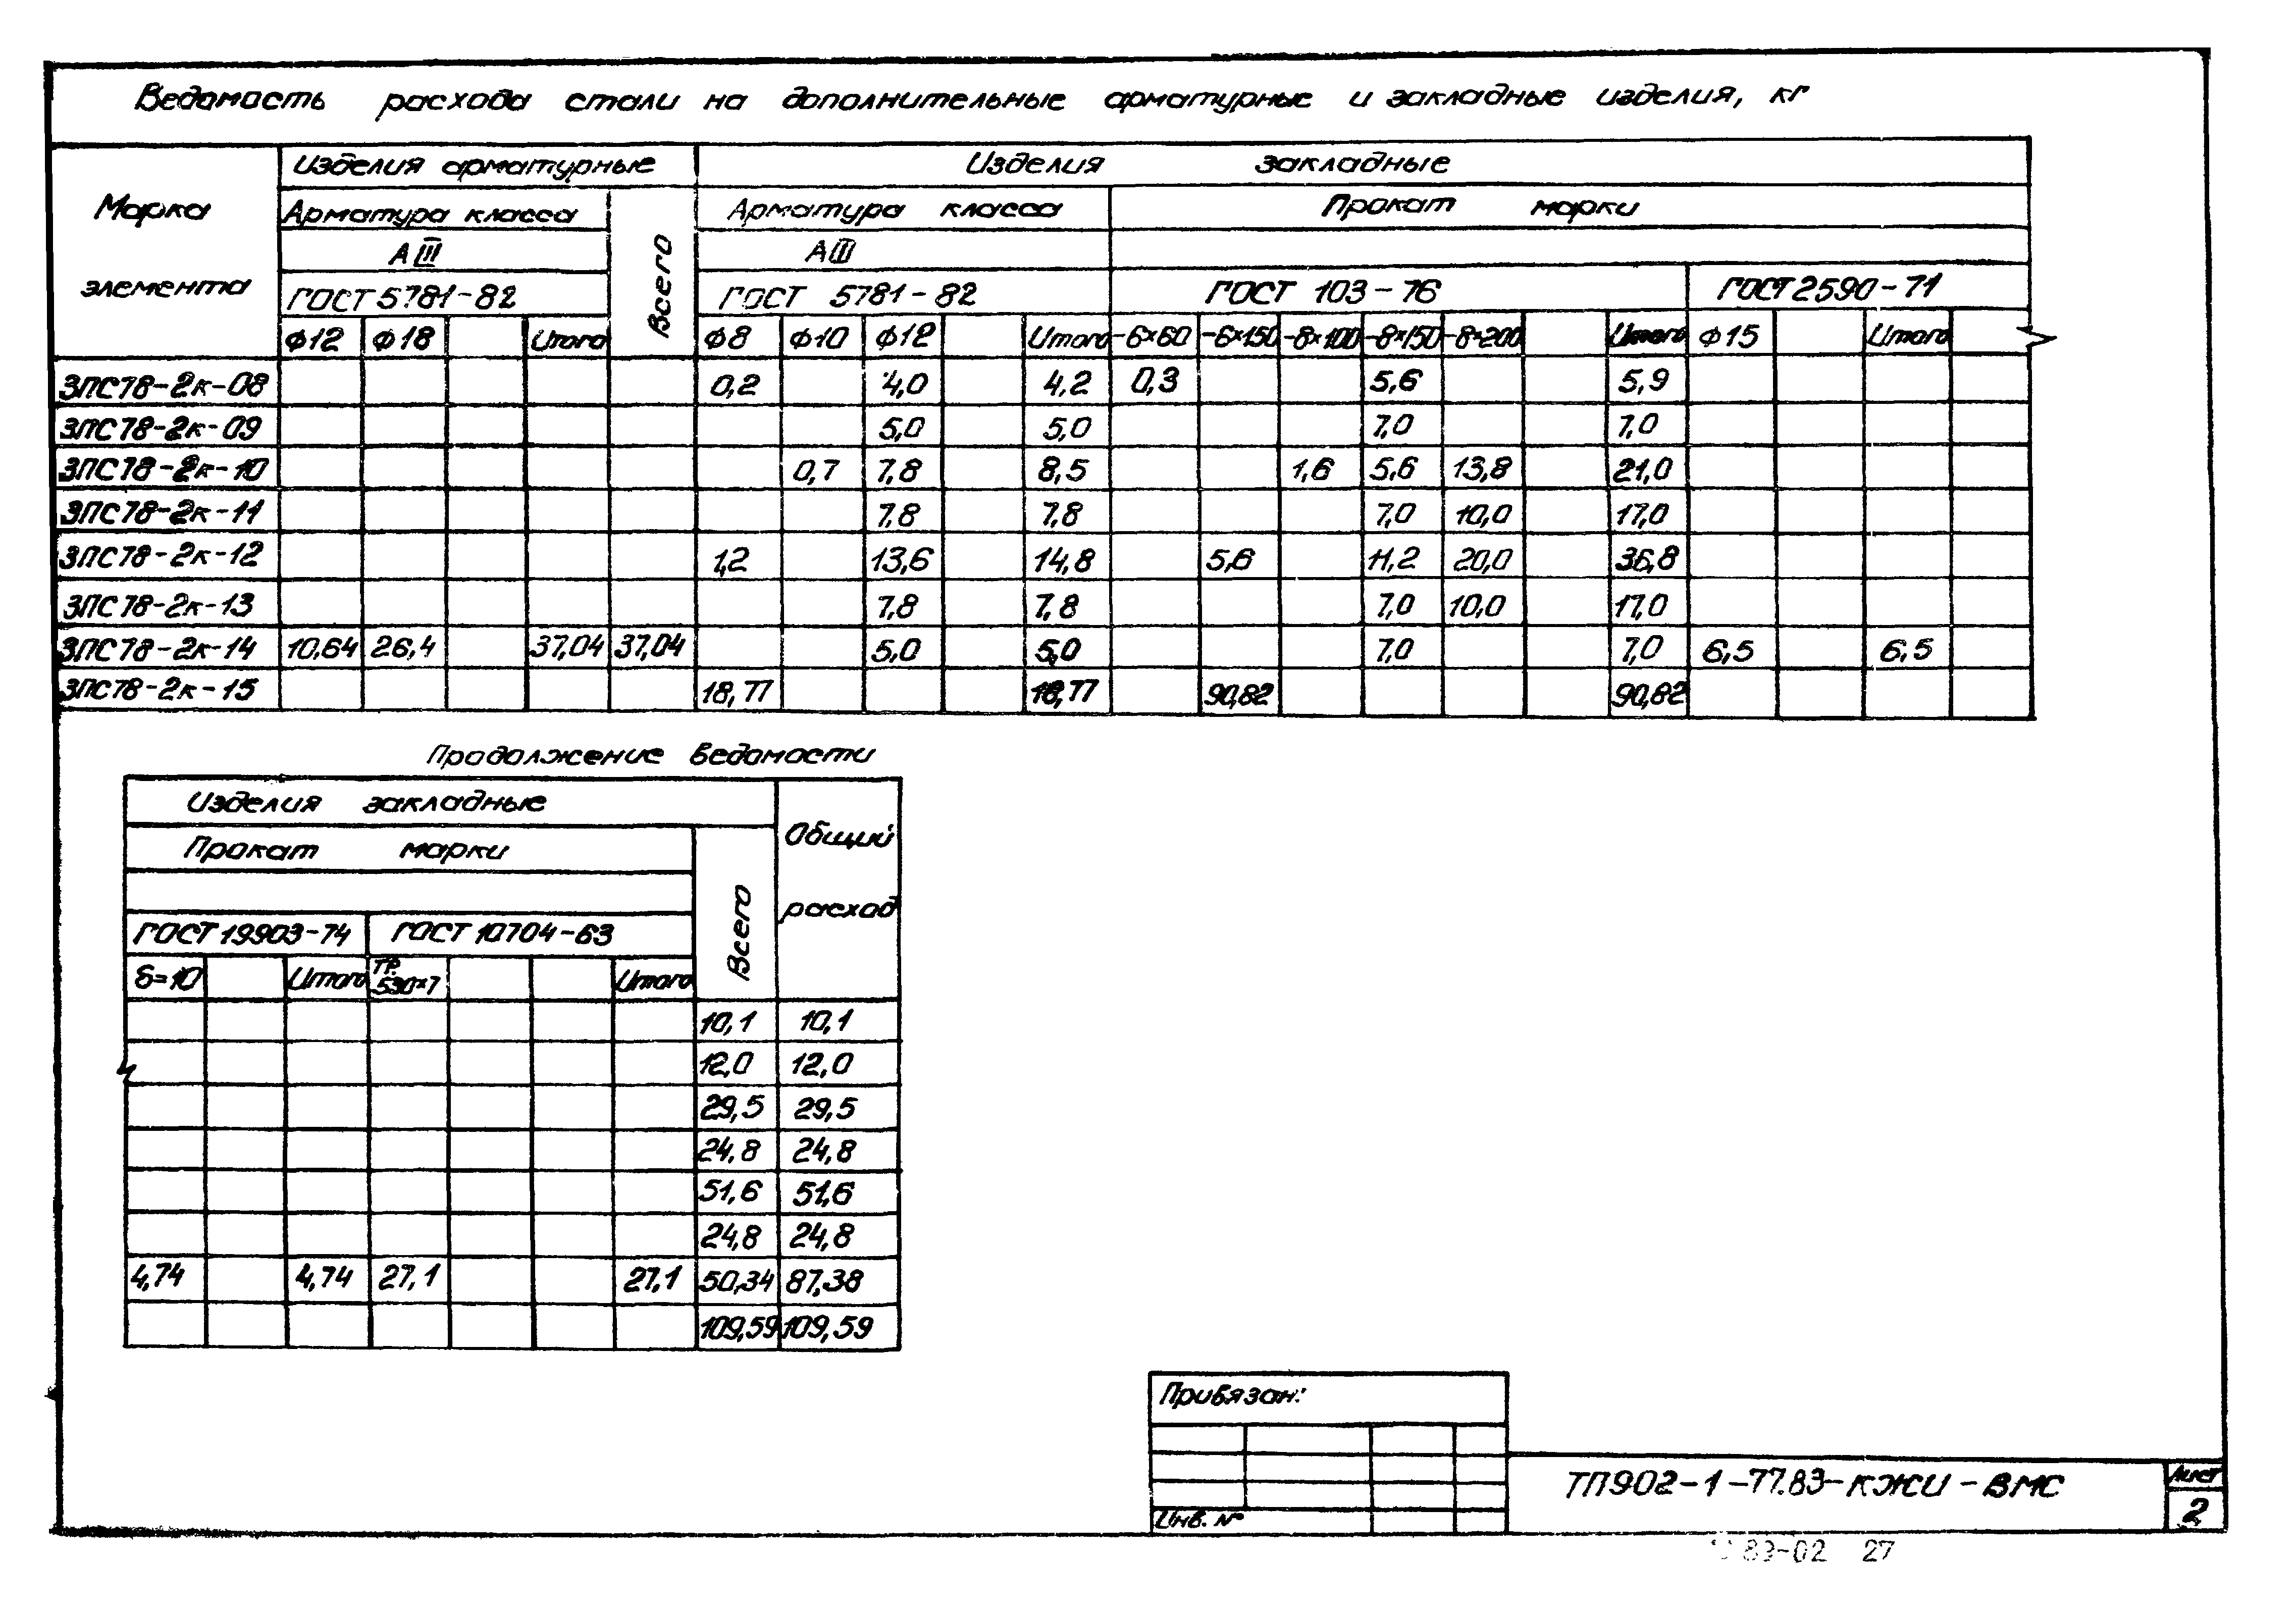 Ведомость расхода стали на дополнительные арматурные и закладные изделия, кг
Марка элемента
Изделия арматурные
Изделия закладные
Арматура класса
Всего
Арматура класса
Прокат марки
АIII
АIII
ГОСТ 5781-82
ГОСТ 5781-82
ГОСТ 103-76
ГОСТ 2590-71
ф12 ф18 Итого ф8 ф10 ф12 Итого -6×60 -6×150 -8×100 -8×150 -8×200 Итого ф15 Итого
3ПС78-2к-08 0,2 4,0 4,2 0,3 5,6 5,9
3ПС78-2к-09 5,0 5,0 7,0 7,0
3ПС78-2к-10 0,7 7,8 8,5 1,6 5,6 13,8 21,0
3ПС78-2к-11 7,8 7,8 7,0 10,0 17,0
3ПС78-2к-12 1,2 13,6 14,8 5,6 11,2 20,0 36,8
3ПС78-2к-13 7,8 7,8 7,0 10,0 17,0
3ПС78-2к-14 10,64 26,4 37,04 37,04 5,0 5,0 7,0 7,0 6,5 6,5
3ПС78-2к-15 18,77 18,77 90,82 90,82
Продолжение ведомости
Изделия закладные
Общий расход
Прокат марки
Всего
ГОСТ 19903-74
ГОСТ 10704-63
δ=10 Итого ТР. 530×7 Итого
10,1 10,1
12,0 12,0
29,5 29,5
24,8 24,8
51,6 51,6
24,8 24,8
4,74 4,74 27,1 27,1 50,34 87,38
109,59 109,59
Привязан:
Инв. №
ТП902-1-77.83-КЖИ-ВМС
Лист
2
89-02 27